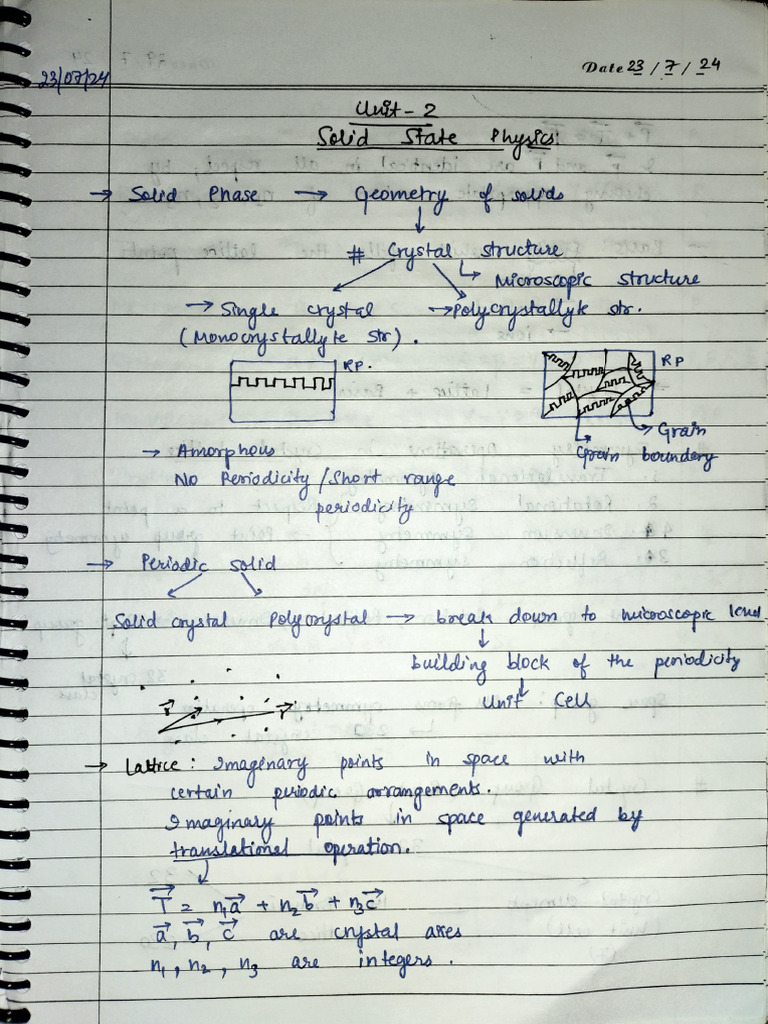 23/07/24
Date 23 / 7 / 24
Unit - 2
Solid State Physics:
→ Solid Phase → Geometry of solids
↓
# Crystal structure
↳ Microscopic structure
→ Single crystal → Polycrystallyte str.
(Monocrystallyte str).
RP. RP
→ Grain
Grain boundary
→ Amorphous
No Periodicity / Short range
periodicity
→ Periodic solid
Solid crystal Polycrystal → break down to microscopic level
↓
building block of the periodicity
↓
Unit Cell
→ Lattice : Imaginary points in space with
certain periodic arrangements.
Imaginary points in space generated by
translational operation.
↓
T⃗ = n₁a⃗ + n₂b⃗ + n₃c⃗
a⃗, b⃗, c⃗ are crystal axes
n₁, n₂, n₃ are integers.